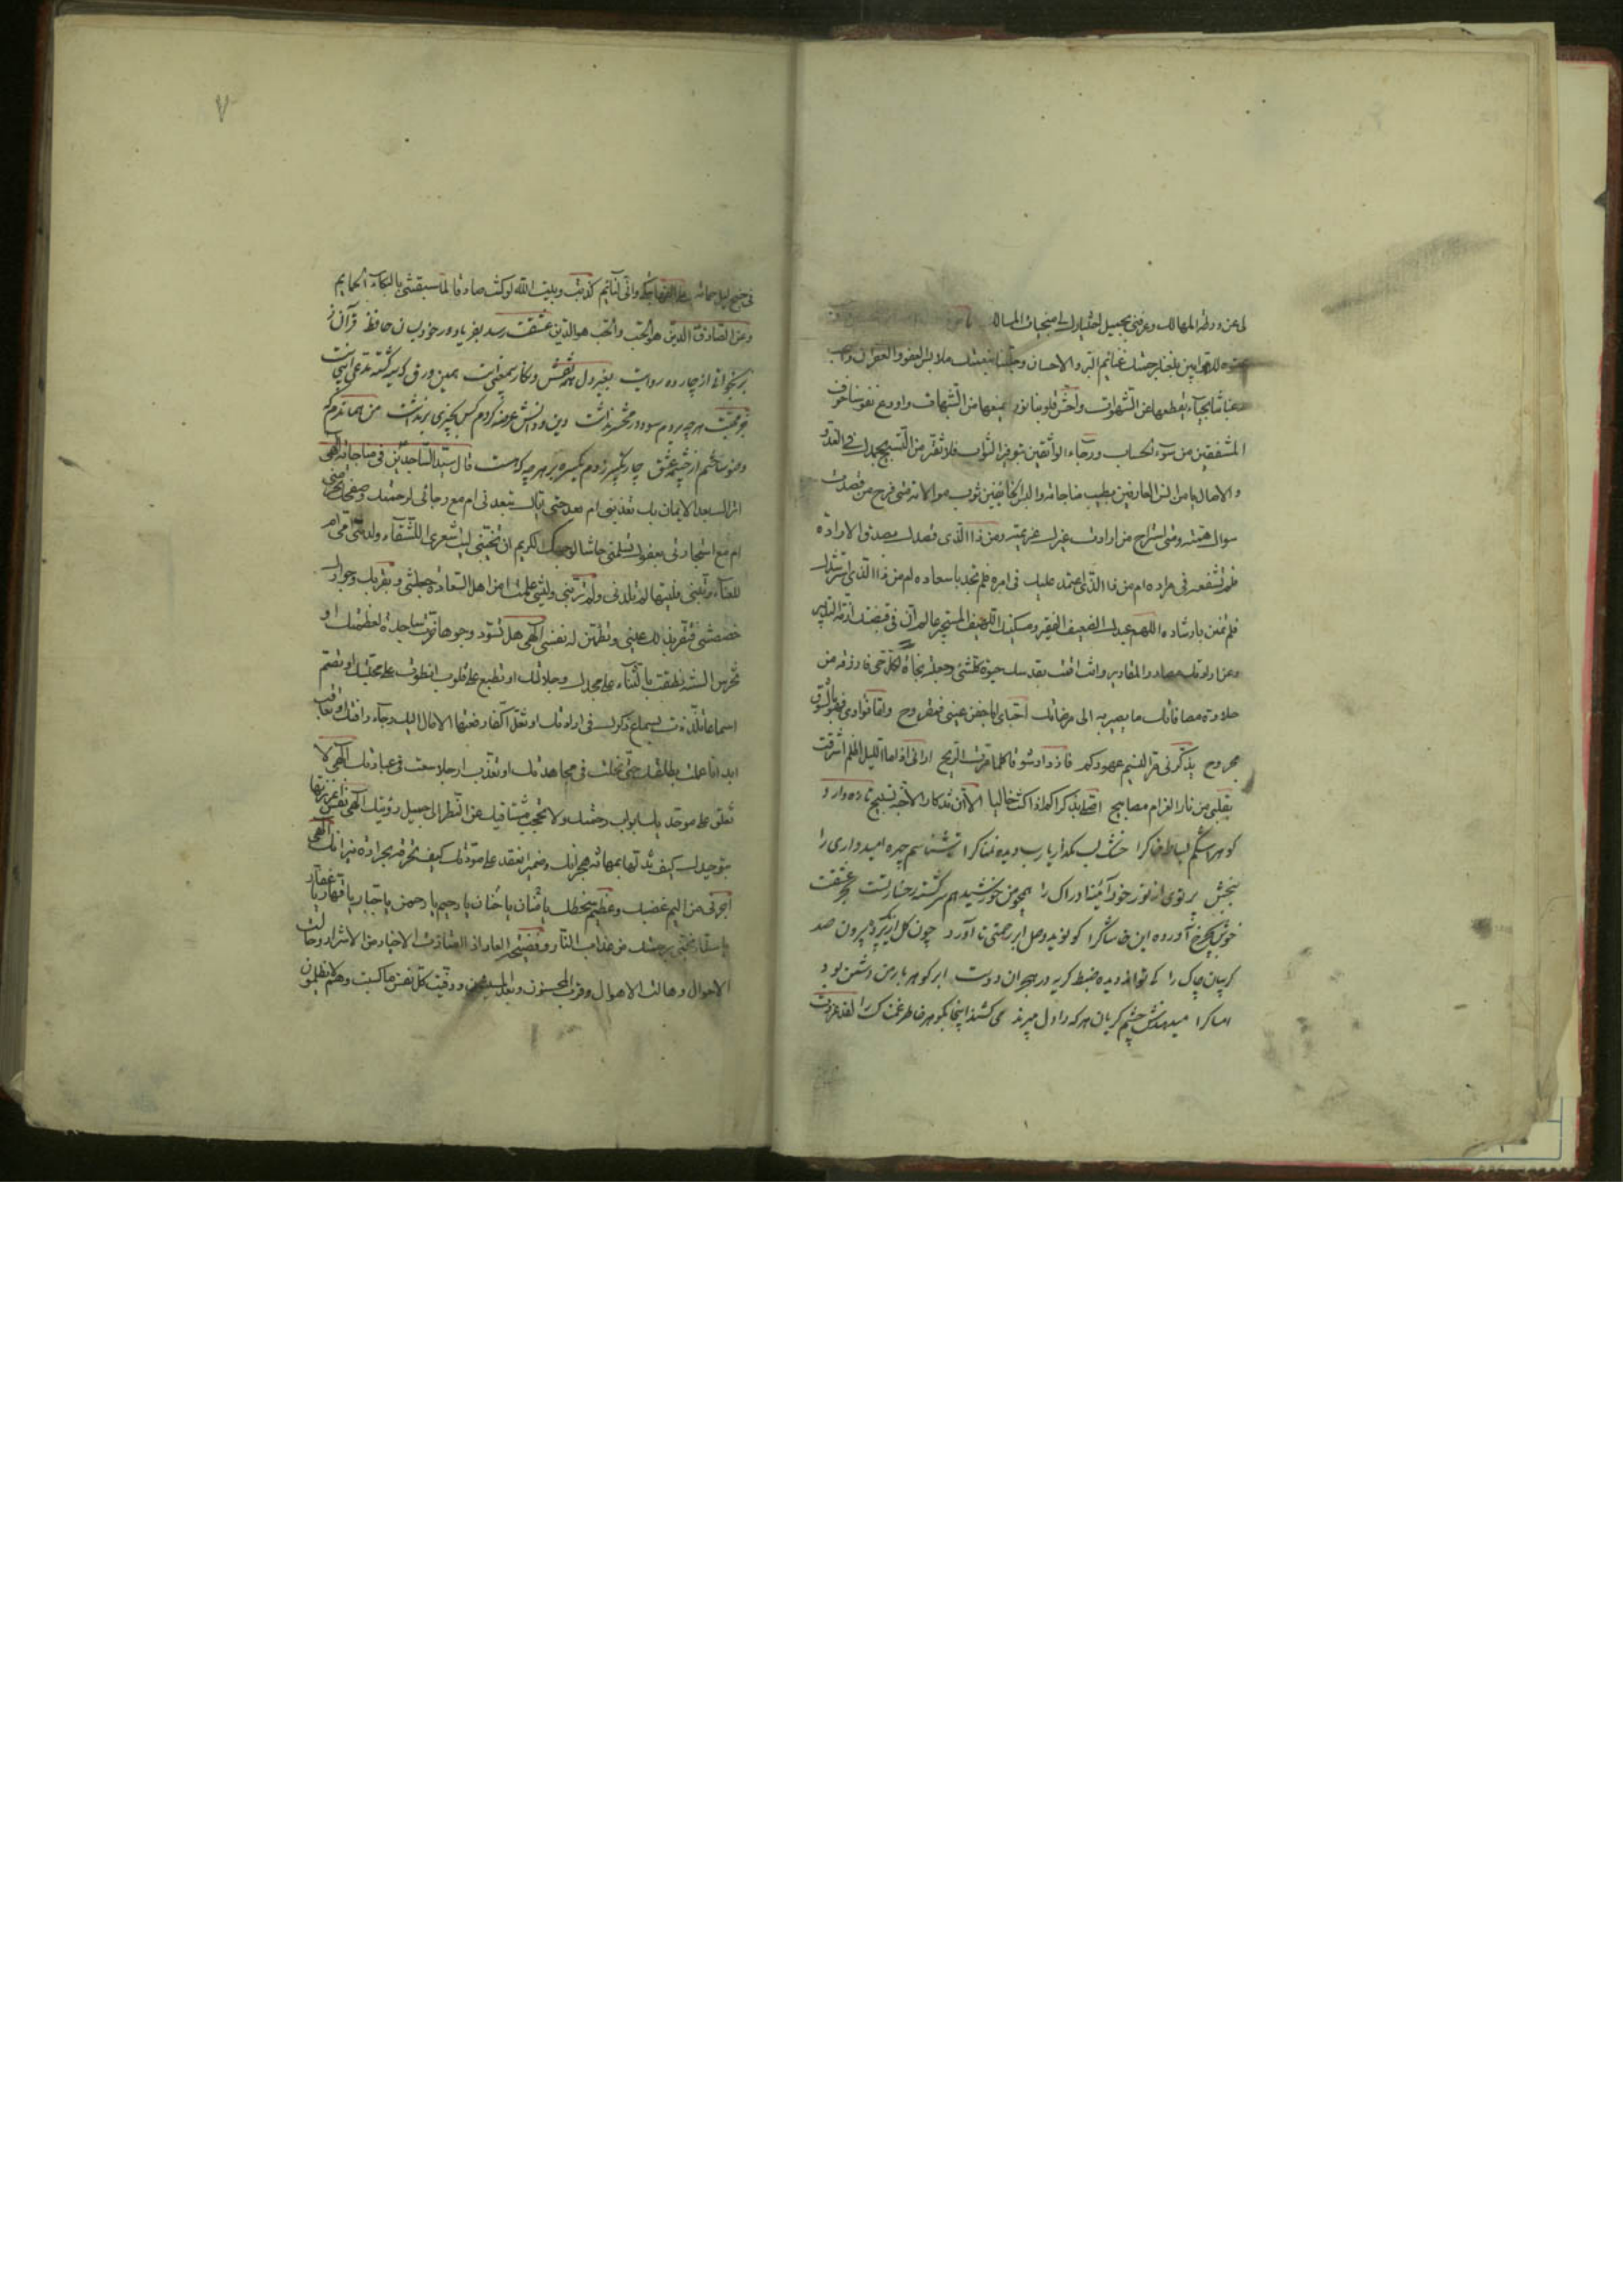 لى عن ورطة المهالك وعرفنى بجميل اختيارك لى منجيات المسالك
للتوابين بلغنا برحمتك غنائم البر والاحسان وجللنا بنعمتك ملابس العفو والغفران واحب
حياء يقطعها عن الشهوات واحش قلوبنا نورا يمنعها من الشبهات واودع نفوسنا خوف
المشفقين من سوء الحساب ورجاء الواثقين بتوفير الثواب فلا نفتر من التسبيح بحمدك فى الغدو
والاصال يا من انس العارفين بطيب مناجاته والبس الخاطئين ثوب موالاته متى فرح من قصدت
سواك همته ومتى استراح من ارادت غيرك عزيمته ومن ذا الذى قصدك بصدق الارادة
فلم تشفعه فى مراده ام من ذا الذى اعتمد عليك فى امره فلم تجد باسعاده ام من ذا الذى استرشدك
فلم تمنن بارشاده اللهم عبدك الضعيف الفقير ومسكينك اللهيف المستجير عالم ان فى قبضتك ازمة التدبير
وعن ارادتك مصادر المقادير وانت اقمت بقدسك حيوة كل شئ وجعلته نجاة لكل حى فارزقه من
حلاوة مصافاتك ما يصير به الى مرضاتك احباى اما جفن عينى فمقروح واما فؤادى فهو بالشوق
مجروح يذكرنى مر النسيم عهودكم فازداد شوقا كلما هبت الريح ارانى اذا ما الليل اظلم اشرقت
بقلبى من نار الغرام مصابيح اصلى بذكراكم اذا كنت خاليا الا ان تذكار الاحبة تسبيح تازه دار و
كوهر اشكم بساط خاكرا خشك لب مگذار يارب ديده نمناكرا تشناسم چهره اميدوارى را
بخش پرتوى از نور خود آئينه ادراك را همچو من خورشيد هم سرگشته رخسار تست عشقت
خوش بچرخ آورده اين خاشاكرا كو نويد وصل ابر رحمتى تا آورد چون گل از پيرون صد
گريبان چاك را كى تواند ديده ضبط گريه در هجران دوست ابر گوهر بار من دشمن بود
امساكرا ميدهندش چشم گريان هر كه را دل ميبرند مى كشند اينجا بگوهر خاطر غمناك را لقد غردت
٧
فى جنح ليل حمامة وانى لنائم كذبت وبيت الله لو كنت صادقا لما سبقتنى بالبكاء الحمايم
وعن الصادق الدين هو الحب والحب هو الدين عشقت رسد بفرياد ور خود بسان حافظ قرآن ز
بر بخوانى از چارده روايت بغير دل همه نقش و نگار بيمعنى است همين ورق كه سيه گشته مدعى اينجاست
جز محبت هر چه بردم سود در محشر نداشت دين و دانش عرضه كردم كس بچيزى برنداشت من همان دم كه
وضو ساختم از چشمه عشق چار تكبير زدم يكسره بر هر چه كه هست قال سيد الساجدين فى مناجاته الهى
اتراك بعد الايمان بك تعذبنى ام بعد حبى اياك تبعدنى ام مع رجائى لرحمتك وصفحك تحرمنى
ام مع استجارتى بعفوك تسلمنى حاشا لوجهك الكريم ان تخيبنى ليت شعرى اللشقاء ولدتنى امى ام
للعناء ربتنى فليتها لم تلدنى ولم تربنى وليتنى علمت امن اهل السعادة جعلتنى وبقربك وجوارك
خصصتنى فتقر بذلك عينى وتطمئن له نفسى الهى هل تسود وجوها خرت ساجدة لعظمتك او
تخرس السنة نطقت بالثناء على مجدك وجلالك او تطبع على قلوب انطوت على محبتك او تصم
اسماعا تلذذت بسماع ذكرك فى ارادتك او تغل اكفا رفعتها الامال اليك رجاء رافتك او تعاقب
ابدانا عملت بطاعتك حتى نحلت فى مجاهدتك او تعذب ارجلا سعت فى عبادتك الهى لا
تغلق على موحديك ابواب رحمتك ولا تحجب مشتاقيك عن النظر الى جميل رؤيتك الهى نفس اعززتها
بتوحيدك كيف تذلها بمهانة هجرانك وضمير انعقد على مودتك كيف تحرقه بحرارة نيرانك الهى
اجرنى من اليم غضبك وعظيم سخطك يا حنان يا منان يا رحيم يا رحمن يا جبار يا قهار يا غفار
يا ستار نجنى برحمتك من عذاب النار وفضيحة العار اذا امتازت الاخيار من الاشرار وحالت
الاحوال وهالت الاهوال وقرب المحسنون وبعد المسيئون ووفيت كل نفس ما كسبت وهم لا يظلمون